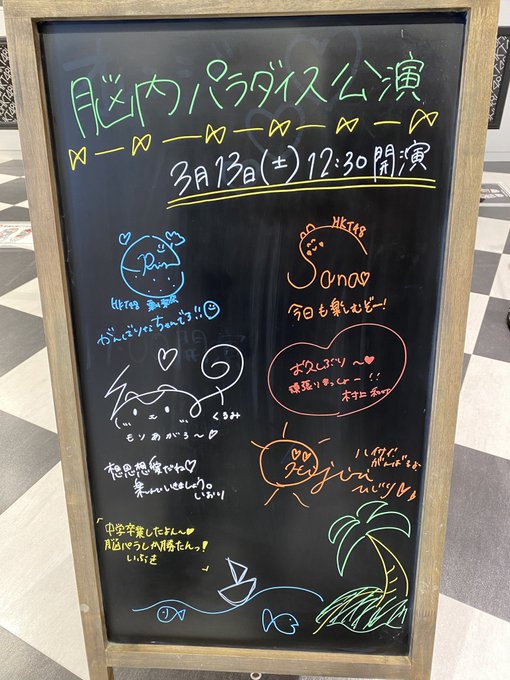 脳内パラダイス公演
3月13日(土) 12:30開演
Rin
HKT48
がんばりんちゃんです!!
HKT48
Sana
今日も楽しむぞー!
くるみ
もりあがろ〜♡
お久しぶり〜♥
頑張りましょー!!
村上和叶
想思想愛だね♡
楽しんでいきましょう。
いおり
ハイサイ
がんばるよ
ひじり
「中学卒業したよん〜♡
脳パラしか勝たんっ!
いぶき
」